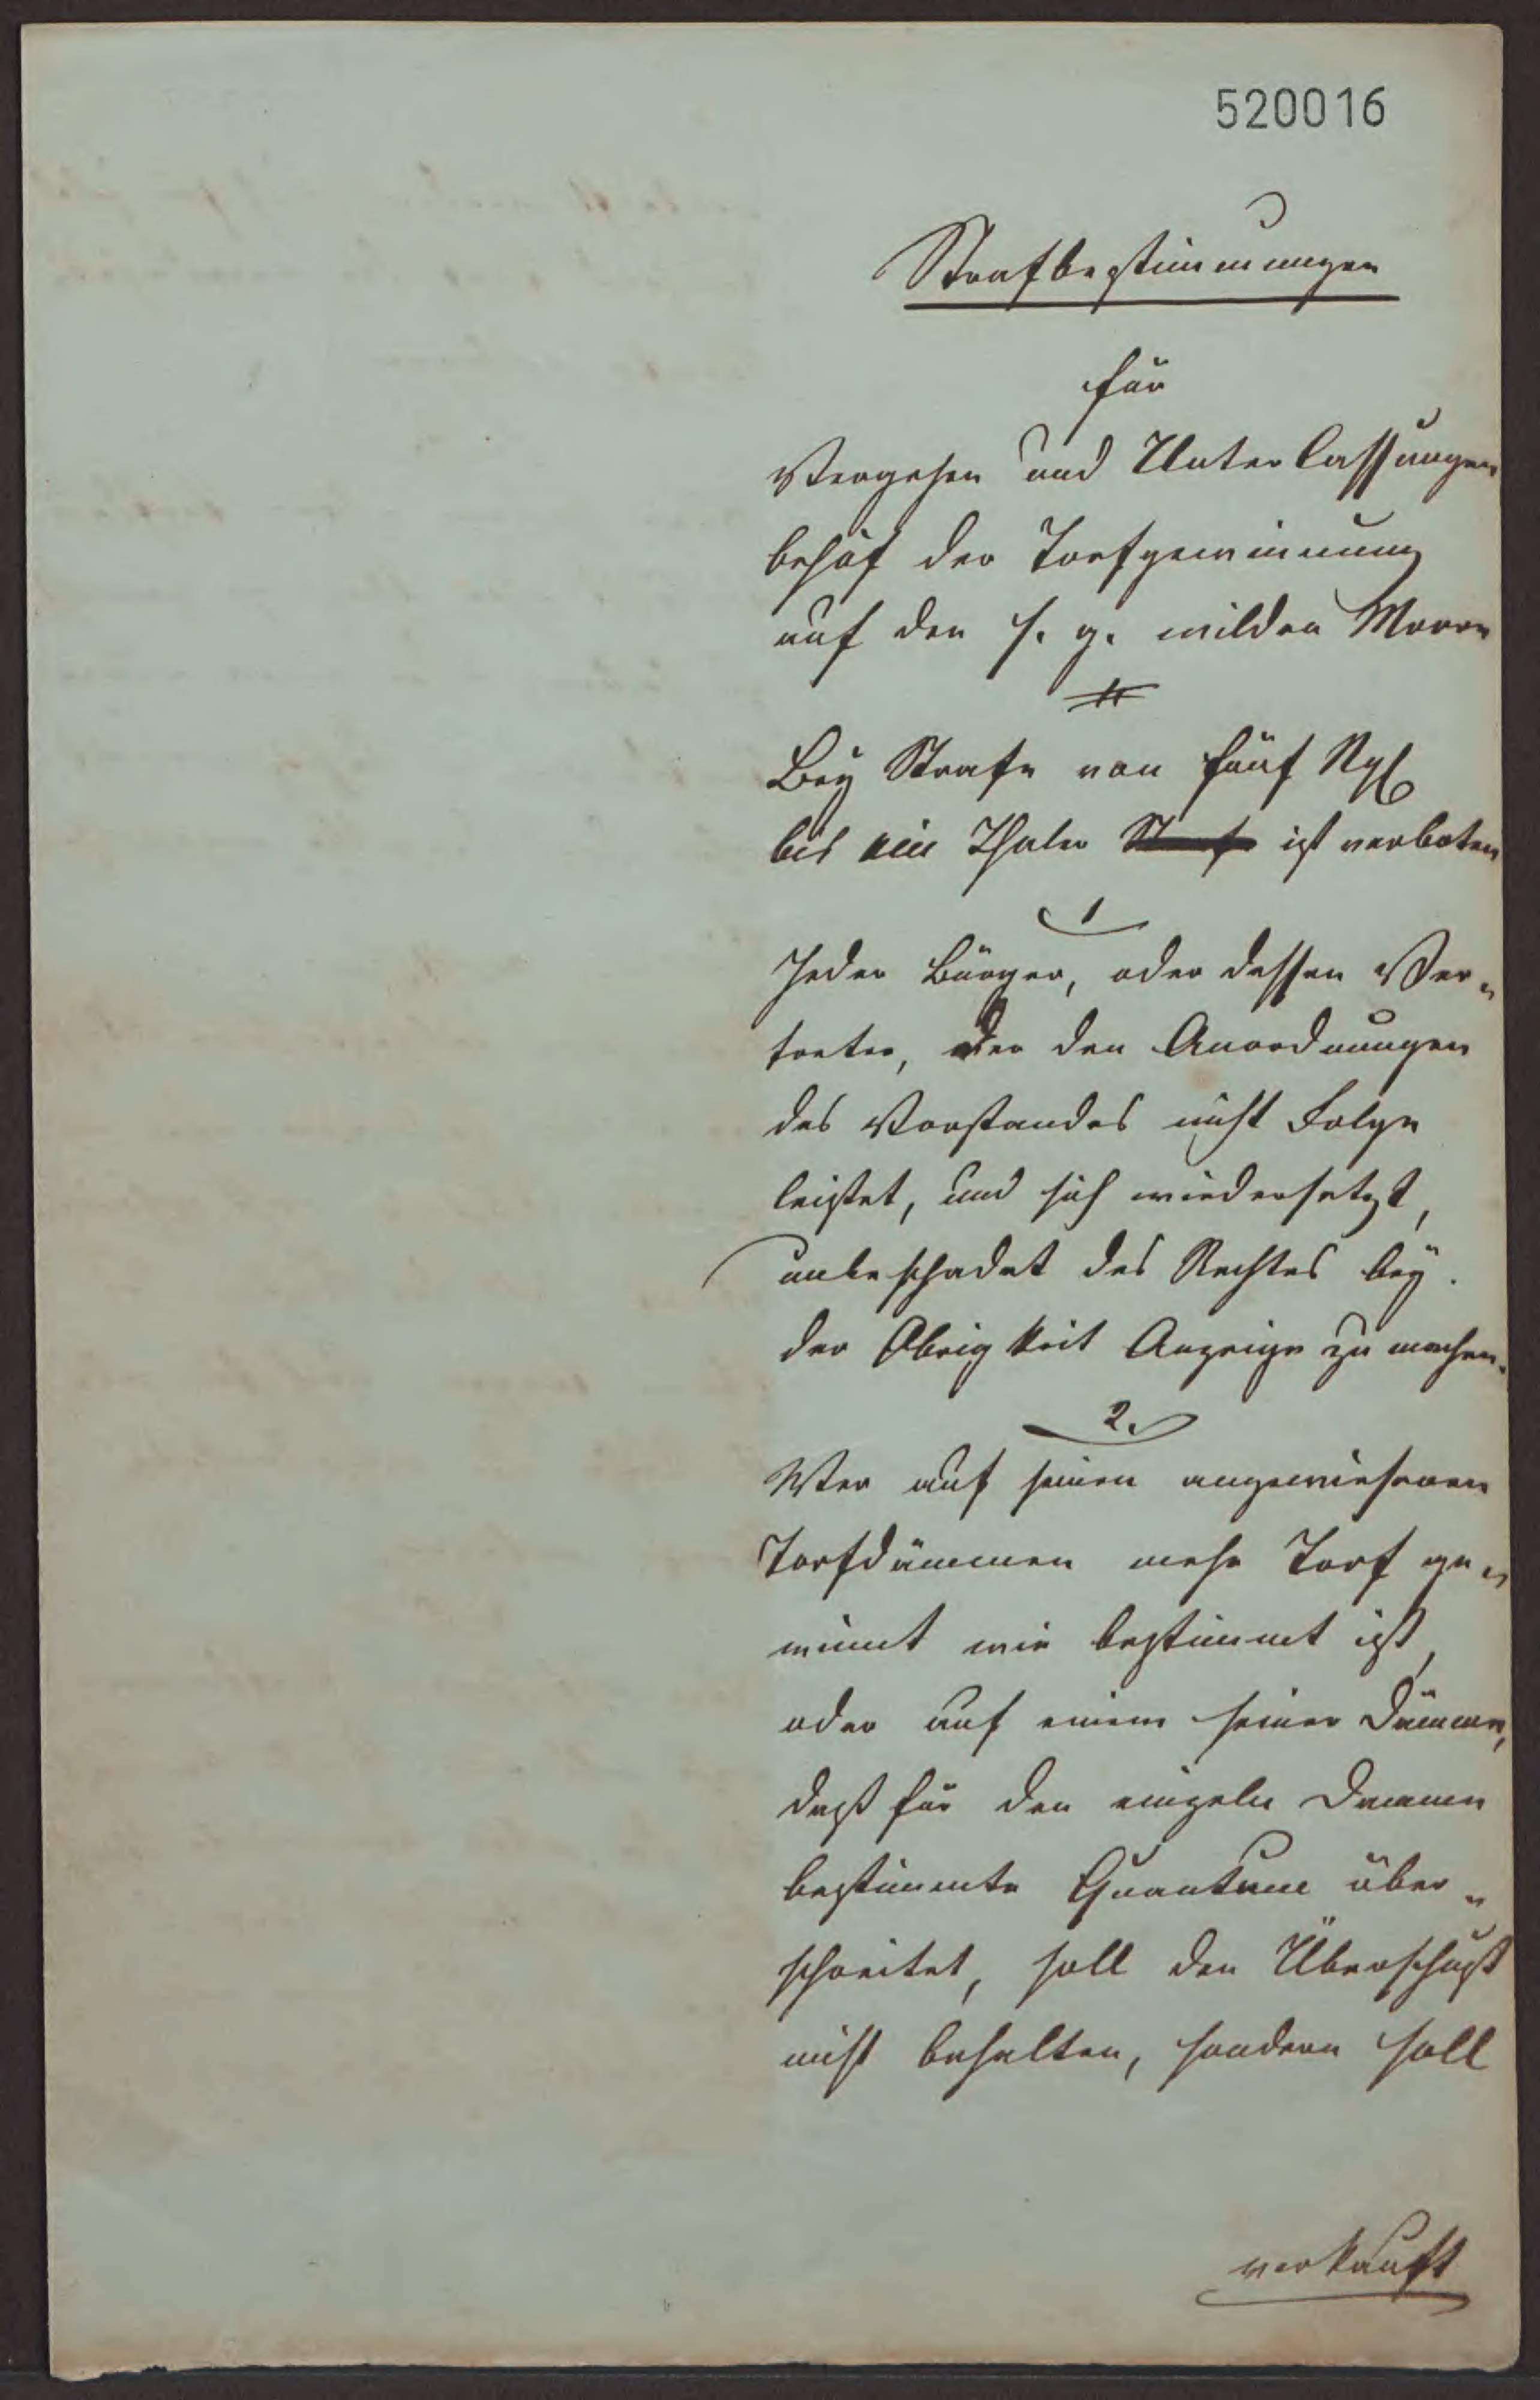 520016
Strafbestimmungen
für
Vergehen und Unterlassungen
behuf der Torfgewinnung
auf den s. g. wilden Moore
Bey Strafe von fünf Ngl
bis ein Thaler Strafe ist verboten
1
Jeder Bürger, oder dessen Ver„
treter, der den Anordnungen
des Vorstandes nicht Folge
leistet, und sich wiedersetzt,
unbeschadet des Rechtes bey
der Obrigkeit Anzeige zu machen.
2.
Wer auf seinen angewiesenen
Torfdämmen mehr Torf ge„
winnt wie bestimmt ist,
oder auf einem seiner Dämme,
daß für den einzeln Dammm
bestimmte Quantum über„
schreitet, soll den Überschuß
nicht behalten, sondern soll
verkauft